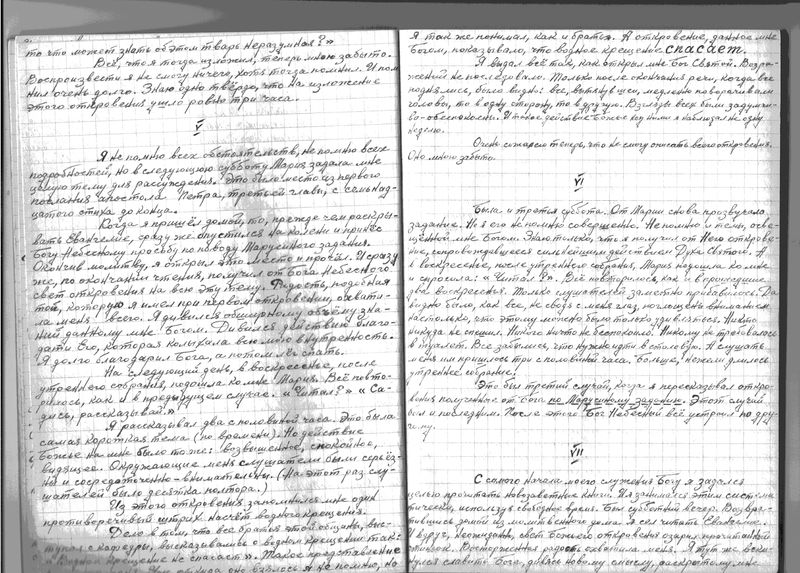 то что может знать об этом тварь неразумная?»
Всё, что я тогда изложил, теперь мною забыто.
Воспроизвести я не смогу ничего, хотя тогда помнил. И пом-
нил очень долго. Знаю одно твёрдо, что на изложение
этого откровения ушло ровно три часа.
V
Я не помню всех обстоятельств, не помню всех
подробностей, но в следующую субботу Мария задала мне
целую тему для рассуждения. Это было место из первого
послания апостола Петра, третьей главы, с семнад-
цатого стиха до конца.
Когда я пришёл домой, то, прежде чем раскры-
вать Евангелие, сразу же опустился на колени и принёс
Богу Небесному просьбу по поводу Марусиного задания.
Окончив молитву, я открыл это место и прочёл. И сразу
же, по окончании чтения, получил от Бога Небесного
свет откровения на всю эту тему. Радость, подобная
той, которую я имел при первом откровении, охвати-
ла меня всего. Я дивился обширному объёму зна-
ний, данному мне Богом. Дивился действию благо-
дати Его, которая колыхала всю мою внутренность.
Я долго благодарил Бога, а потом лёг спать.
На следующий день, в воскресенье, после
утреннего собрания, подошла ко мне Мария. Всё повто-
рилось, как и в предыдущем случае. «Читал?» «Са-
дись, рассказывай.»
Я рассказывал два с половиной часа. Это была
самая короткая тема (по времени). Но действие
Божье на мне было то же: возвышенное, спокойное,
видящее. Окружающие меня слушатели были серьёз-
ны и сосредоточенно-внимательны. (На этот раз слу-
шателей было десятка полтора.)
Из этого откровения запомнился мне один
противоречивый штрих насчёт водного крещения.
Дело в том, что все братья этой общины, выс-
тупая с кафедры, высказывались о водном крещении так:
«Водное крещение не спасает». Такое представление
взялось я не помню, но
я так же понимал, как и братья. А откровение, данное мне
Богом, показывало, что водное крещение спасает.
Я выдал всё так, как открыл мне Бог Святой. Возра-
жений не последовало. Только после окончания речи, когда все
поднялись, было видно: все, выткнувшись, медленно поворачивали
головы, то в одну сторону, то в другую. Взгляды всех были задумчи-
во-обеспокоены. И такое действие Божье над ними я наблюдал не одну
неделю.
Очень сожалею теперь, что не смогу описать всего откровения.
Оно мною забыто.
VI
Была и третья суббота. От Марии снова прозвучало
задание. Но я его не помню совершенно. Не помню и темы, осве-
щённой мне Богом. Знаю только, что я получил от Него откровe-
ние, сопровождавшееся сильнейшим действием Духа Святого. А
в воскресенье, после утреннего собрания, Мария подошла ко мне
и спросила: «Читал?». Всё повторилось, как и в прошедшие
два воскресенья. Только слушателей заметно прибавилось. Да
видно было, как все, не сводя с меня глаз, поглощены вниманием
настолько, что этому можно было только удивляться. Никто
никуда не спешил. Никого ничто не беспокоило. Никому не требовалось
в туалет. Все забылись, что нужно идти в столовую. А слушать
меня им пришлось три с половиной часа. Больше, нежели длилось
утреннее собрание.
Это был третий случай, когда я пересказывал откро-
вения полученные от Бога по Марусиному заданию. Этот случай
был и последним. После этого Бог Небесный всё устроил по дру-
гому.
VII
С самого начала моего служения Богу я задался
целью прочитать новозаветные книги. И я занимался этим система-
тически, используя свободное время. Был субботний вечер. Возвра-
тившись зимой из молитвенного дома. Я сел читать Евангелие.
И вдруг, неожиданно, свет Божьего откровения озарил прочитанный
мною. Восторженная радость охватила меня. Я тут же воски-
нулся славить Бога, дивясь новому смыслу, раскрытому мне